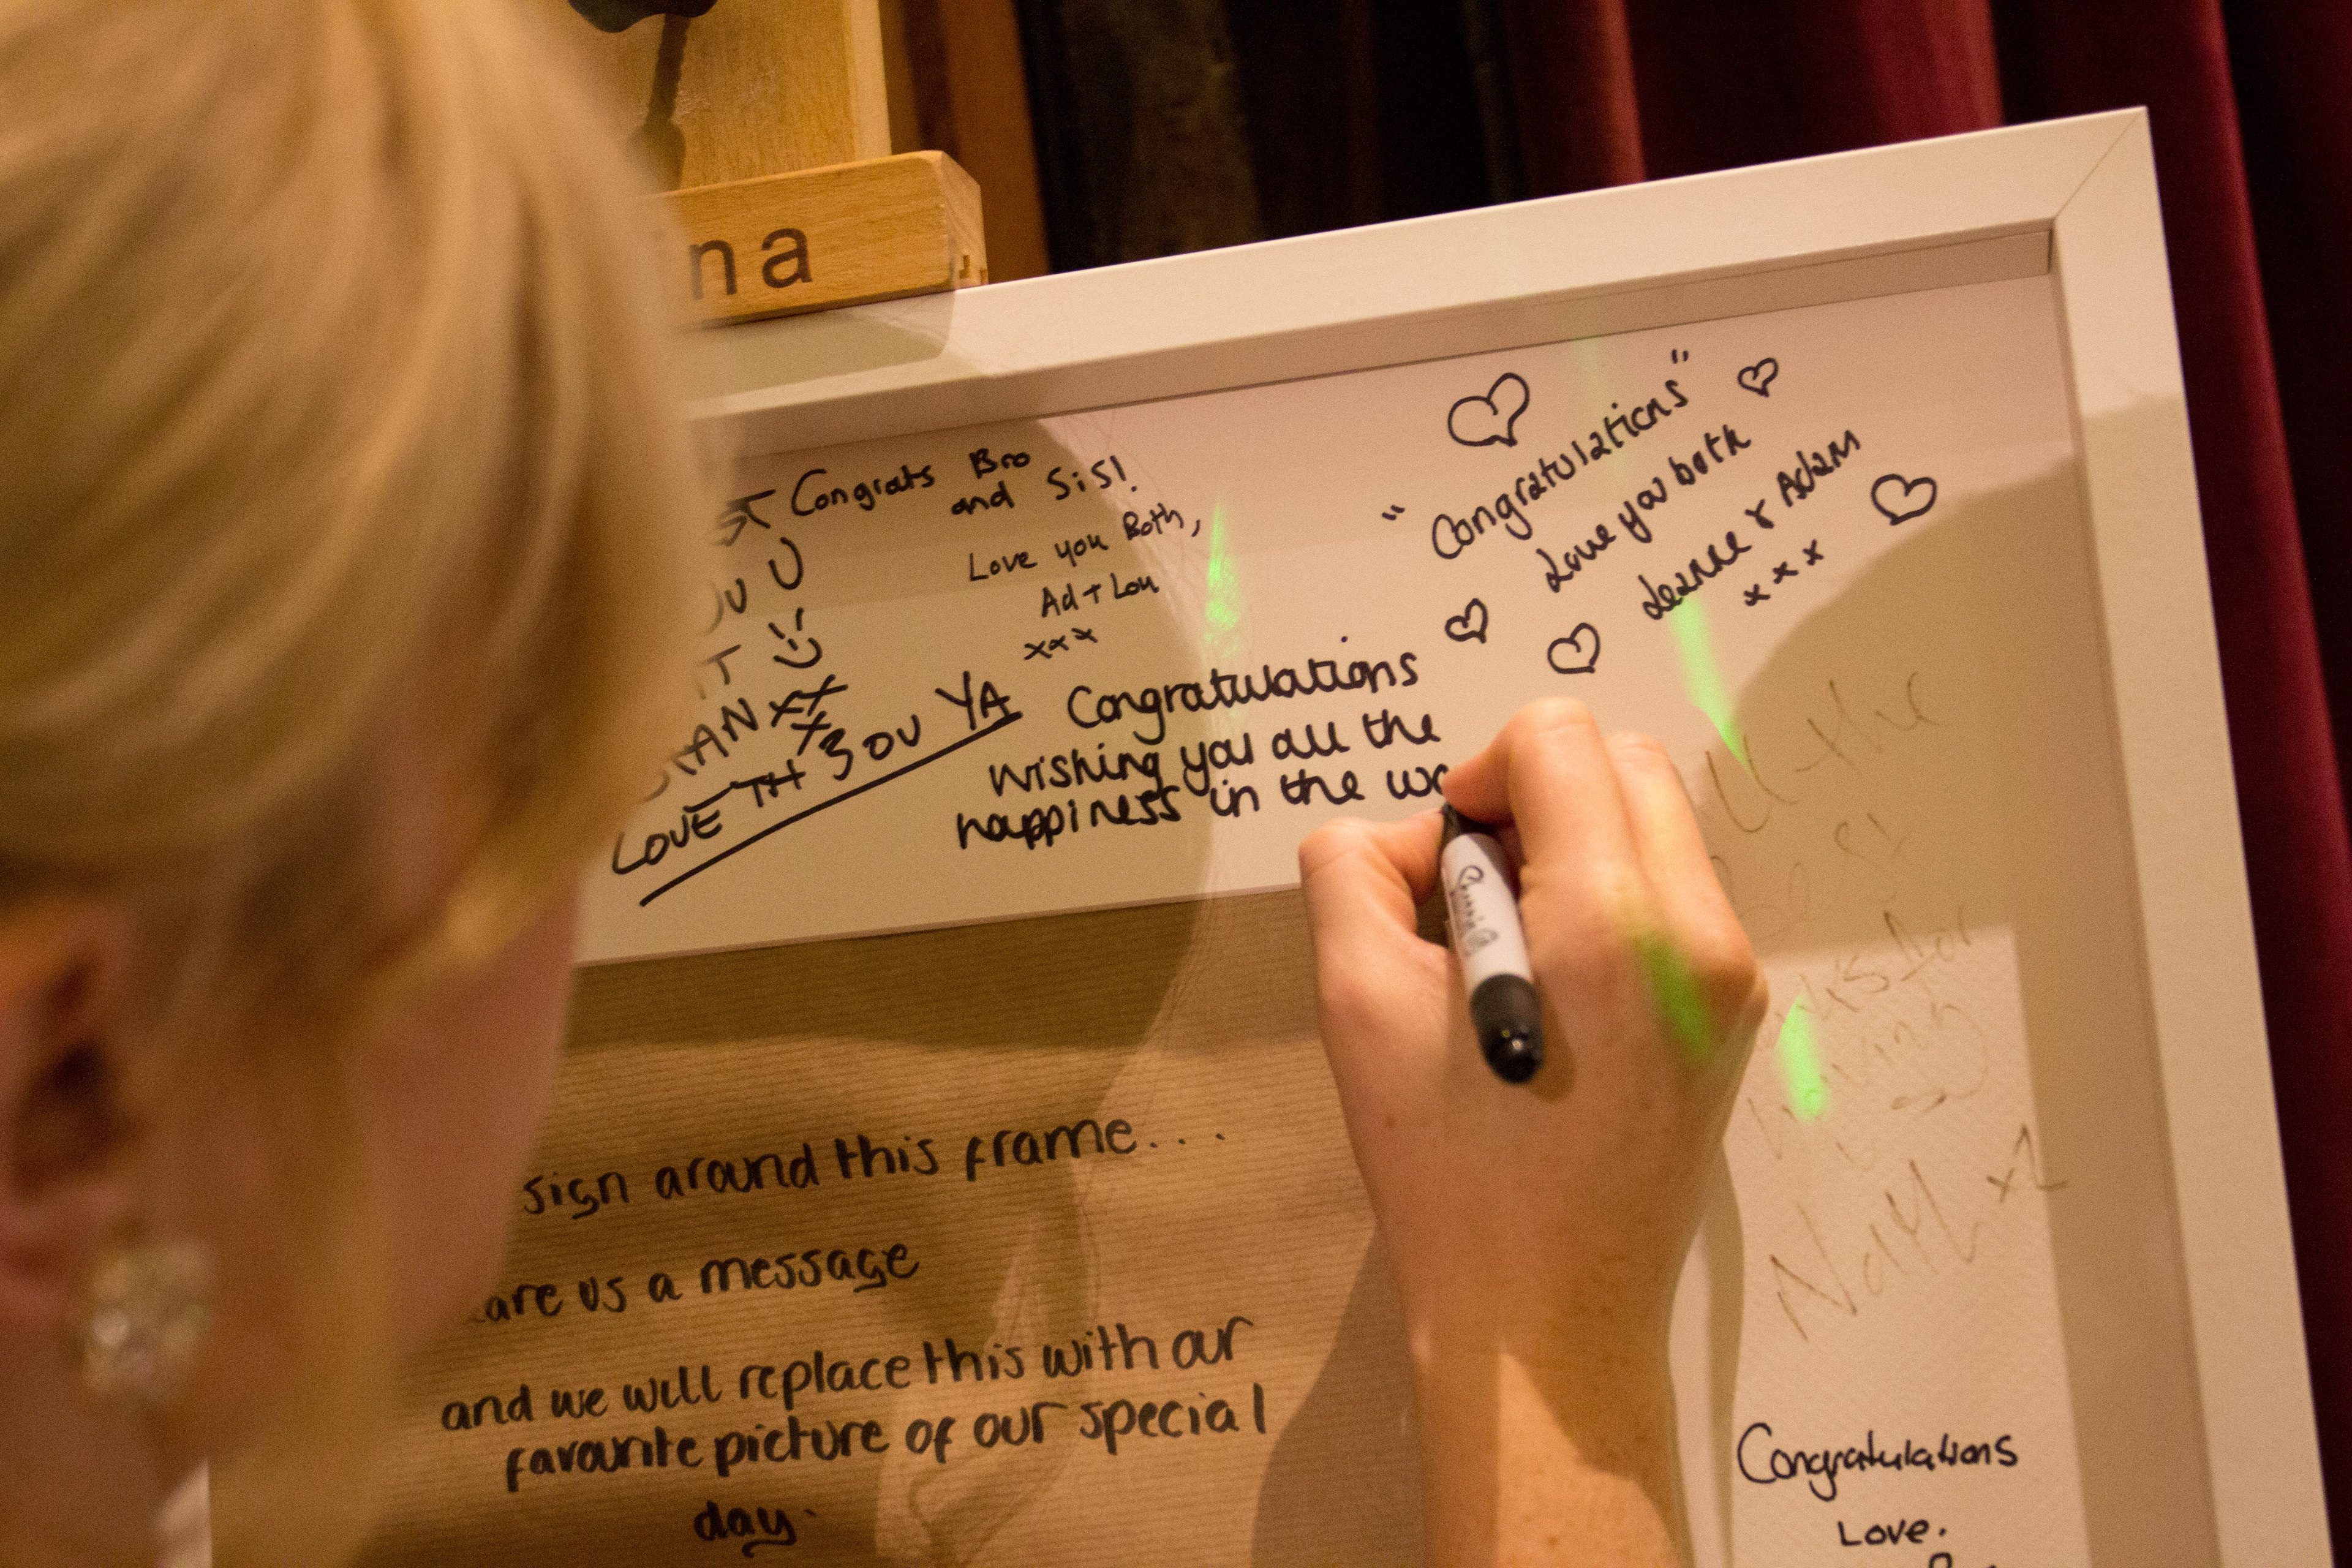 na
Congrats Bro
and SiS!
Love you Both,
Ad + Lou
xxx
LOVE TH BOU YA
"Congratulations"
Love you both
Leanne & Adam
x x x
Congratulations
Wishing you all the
happiness in the wo
all the
Nath x2
sign around this frame...
us a message
and we will replace this with our
favourite picture of our special
day.
Congratulations
Love.
Sharpie